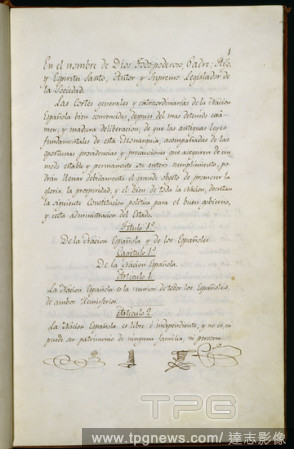 1
En el nombre de Dios Todopoderoso, Padre, Hijo,
y Espiritu Santo, Autor y Supremo Legislador de
la Sociedad.
Las Cortes generales y extraordinarias de la Nacion
Española, bien convencidas, despues del mas detenido exa-
men, y madura deliberacion, de que las antiguas leyes
fundamentales de esta Monarquia, acompañadas de las
oportunas providencias y precauciones, que aseguren de un
modo estable y permanente su entero cumplimiento, po-
dran llenar debidamente el grande objeto de promover la
gloria, la prosperidad, y el bien de toda la Nacion, decretan
la siguiente Constitucion politica para el buen gobierno,
y recta administracion del Estado.
Titulo 1º
De la Nacion Española y de los Españoles.
Capitulo 1º
De la Nacion Española.
Articulo 1.
La Nacion Española es la reunion de todos los Españoles
de ambos hemisferios.
Articulo 2.
La Nacion Española es libre é independiente, y no es, ni
puede ser patrimonio de ninguna familia, ni persona.
TPG
www.tpgnews.com/達志影像